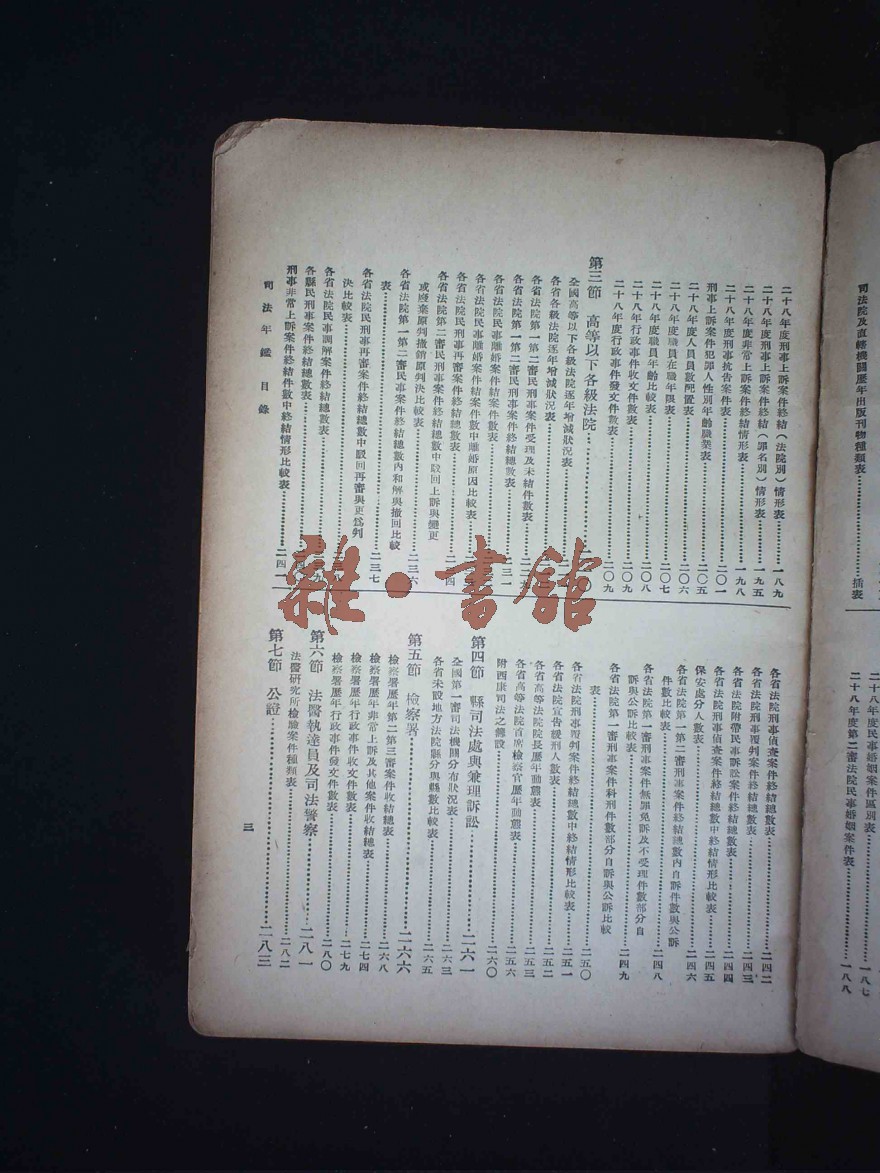 司法院及直轄機關歷年出版刊物種類表……插表
二十八年度民事婚姻案件區別表……一八七
二十八年度第二審法院民事婚姻案件表……一八八
二十八年度刑事上訴案件終結（法院別）情形表……一八九
二十八年度刑事上訴案件終結（罪名別）情形表……一九五
二十八年度非常上訴案件終結情形表……一九八
二十八年度刑事抗告案件表……二〇一
刑事上訴案件犯罪人性別年齡職業表……二〇五
二十八年度人員員數配置表……二〇六
二十八年度職員在職年限表……二〇七
二十八年度職員年齡比較表……二〇八
二十八年度行政事件收文件數表……二〇九
二十八年度行政事件發文件數表……二〇九
第三節 高等以下各級法院……
全國高等以下各級法院逐年增減狀況表……
各省各級法院逐年增減狀況表……
各省法院第一第二審民刑事案件受理及未結件數表……
各省法院第一第二審民刑事案件終結總數表……
各省法院民事離婚案件結案件數表……
各省法院民事離婚案件結案件數中離婚原因比較表……
各省法院民刑事再審案件終結總數表……
各省法院第二審民刑事案件終結總數中駁回上訴與變更
或廢棄原判撤銷原判決比較表……二三六
各省法院第一第二審民事案件終結總數內和解與撤回比較
表……二三七
各省法院民刑事再審案件終結總數中駁回再審與更為判
決比較表……
各省法院民事調解案件終結總數表……
各縣民刑事案件終結總數表……
刑事非常上訴案件終結件數中終結情形比較表……二四一
司法年鑑 目錄
各省法院刑事偵查案件終結總數表……二四二
各省法院刑事覆判案件終結總數表……二四三
各省法院附帶民事訴訟案件終結總數表……二四四
各省法院刑事偵查案件終結總數中終結情形比較表……二四五
保安處分人數表……二四六
各省法院第一第二審刑事案件終結總數內自訴件數與公訴
件數比較表……二四八
各省法院第一審刑事案件無罪免訴及不受理件數部分自
訴與公訴比較表……二四九
各省法院第一審刑事案件科刑件數部分自訴與公訴比較
表……二五〇
各省法院刑事覆判案件終結總數中終結情形比較表……二五一
各省法院宣告緩刑人數表……二五二
各省高等法院院長歷年動態表……二五三
各省高等法院首席檢察官歷年動態表……二五六
附西康司法之傳設……二六〇
第四節 縣司法處與兼理訴訟……二六一
全國第一審司法機關分布狀況表……二六三
各省未設地方法院縣分與縣數比較表……二六五
第五節 檢察署……二六六
檢察署歷年第二第三審案件收結總表……二六八
檢察署歷年非常上訴及其他案件收結總表……二七四
檢察署歷年行政事件收文件數表……二七九
檢察署歷年行政事件發文件數表……二八〇
第六節 法醫執達員及司法警察……二八一
法醫研究所檢驗案件種類表……二八二
第七節 公證……二八三
三
雜·書館